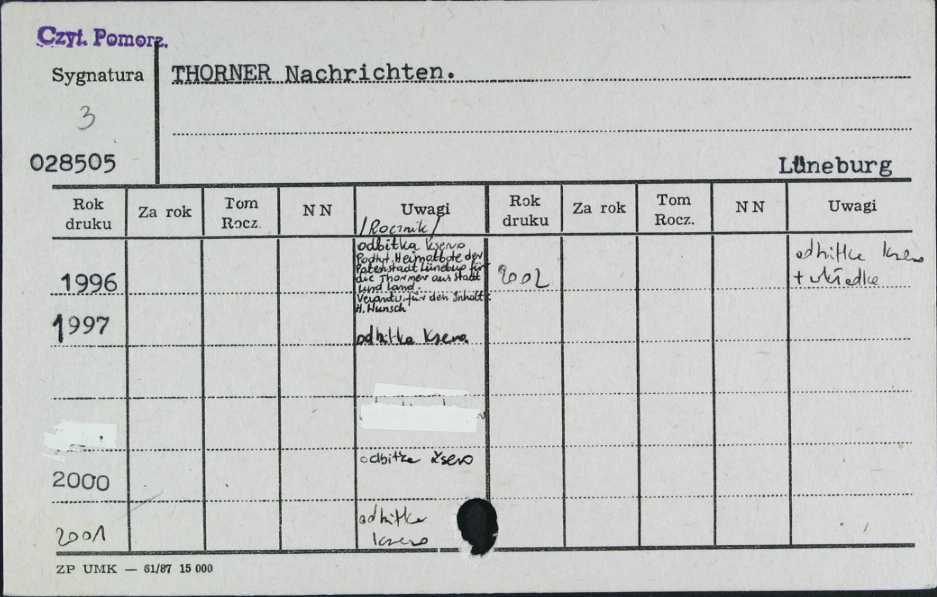 Czyt. Pomorz.
Sygnatura
THORNER Nachrichten.
3
028505
Lüneburg
Rok druku Za rok Tom Rocz. NN Uwagi Rok druku Za rok Tom Rocz. NN Uwagi
/Rocznik/
odbitka ksero
Podtyt. Heimatbote der
Patenstadt Lüneburg für
die Thorner aus Stadt
und Land.
Verantw. für den Inhalt:
H. Hunsch
1996
2002
odbitka ksero
+ wkładka
1997
odbitka ksero
odbitka ksero
2000
odbitka
ksero
2001
ZP UMK — 61/87 15 000